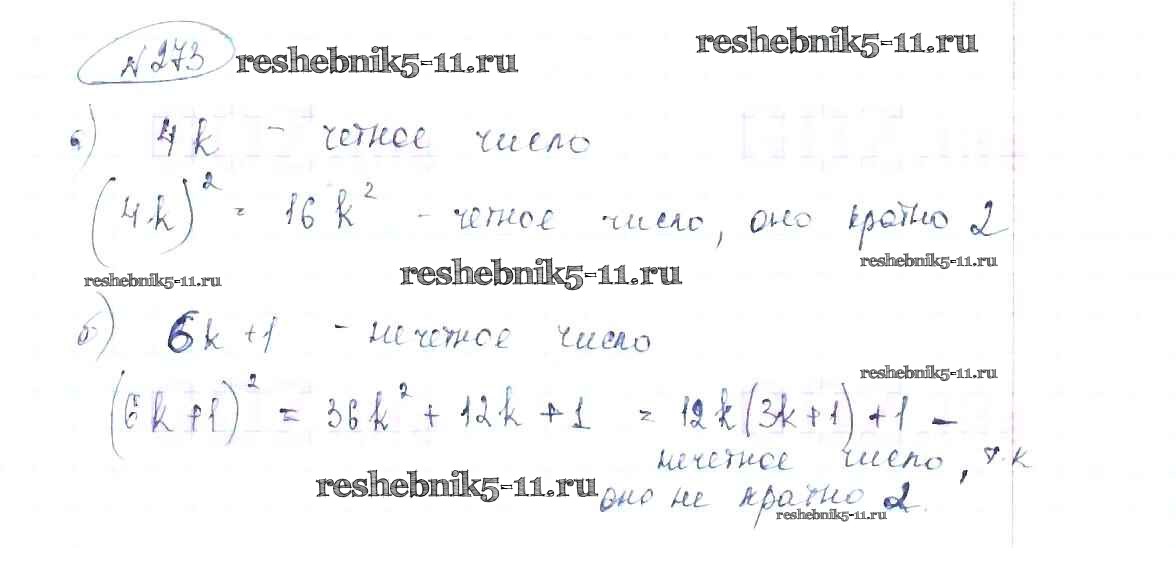 № 273 reshebnik5-11.ru reshebnik5-11.ru
а) 4k - четное число
(4k)² = 16k² - четное число, оно кратно 2
reshebnik5-11.ru reshebnik5-11.ru reshebnik5-11.ru
б) 6k + 1 - нечетное число
reshebnik5-11.ru
(6k+1)² = 36k² + 12k + 1 = 12k(3k+1)+1 -
нечетное число, т.к
reshebnik5-11.ru оно не кратно 2.
reshebnik5-11.ru